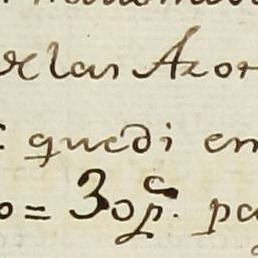 de las Azor
quedi en
o = 30p.c pa